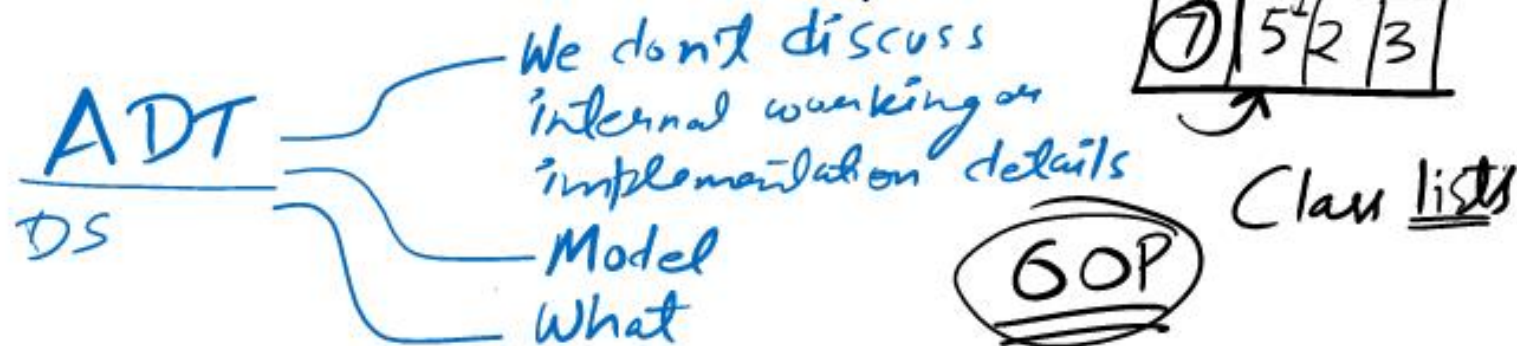 ADT
DS
We don't discuss
internal working or
implementation details
Model
What
7 5 2 3
Class lists
OOP